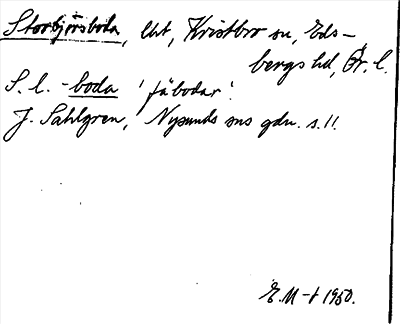 Storbjörsboda, lht, Kristbro sn, Eds-
bergs hd, Ör. l.
S. l. -boda 'fäbodar'.
J. Sahlgren, Nysunds sns gdn. s. 11.
E. M-t 1950.